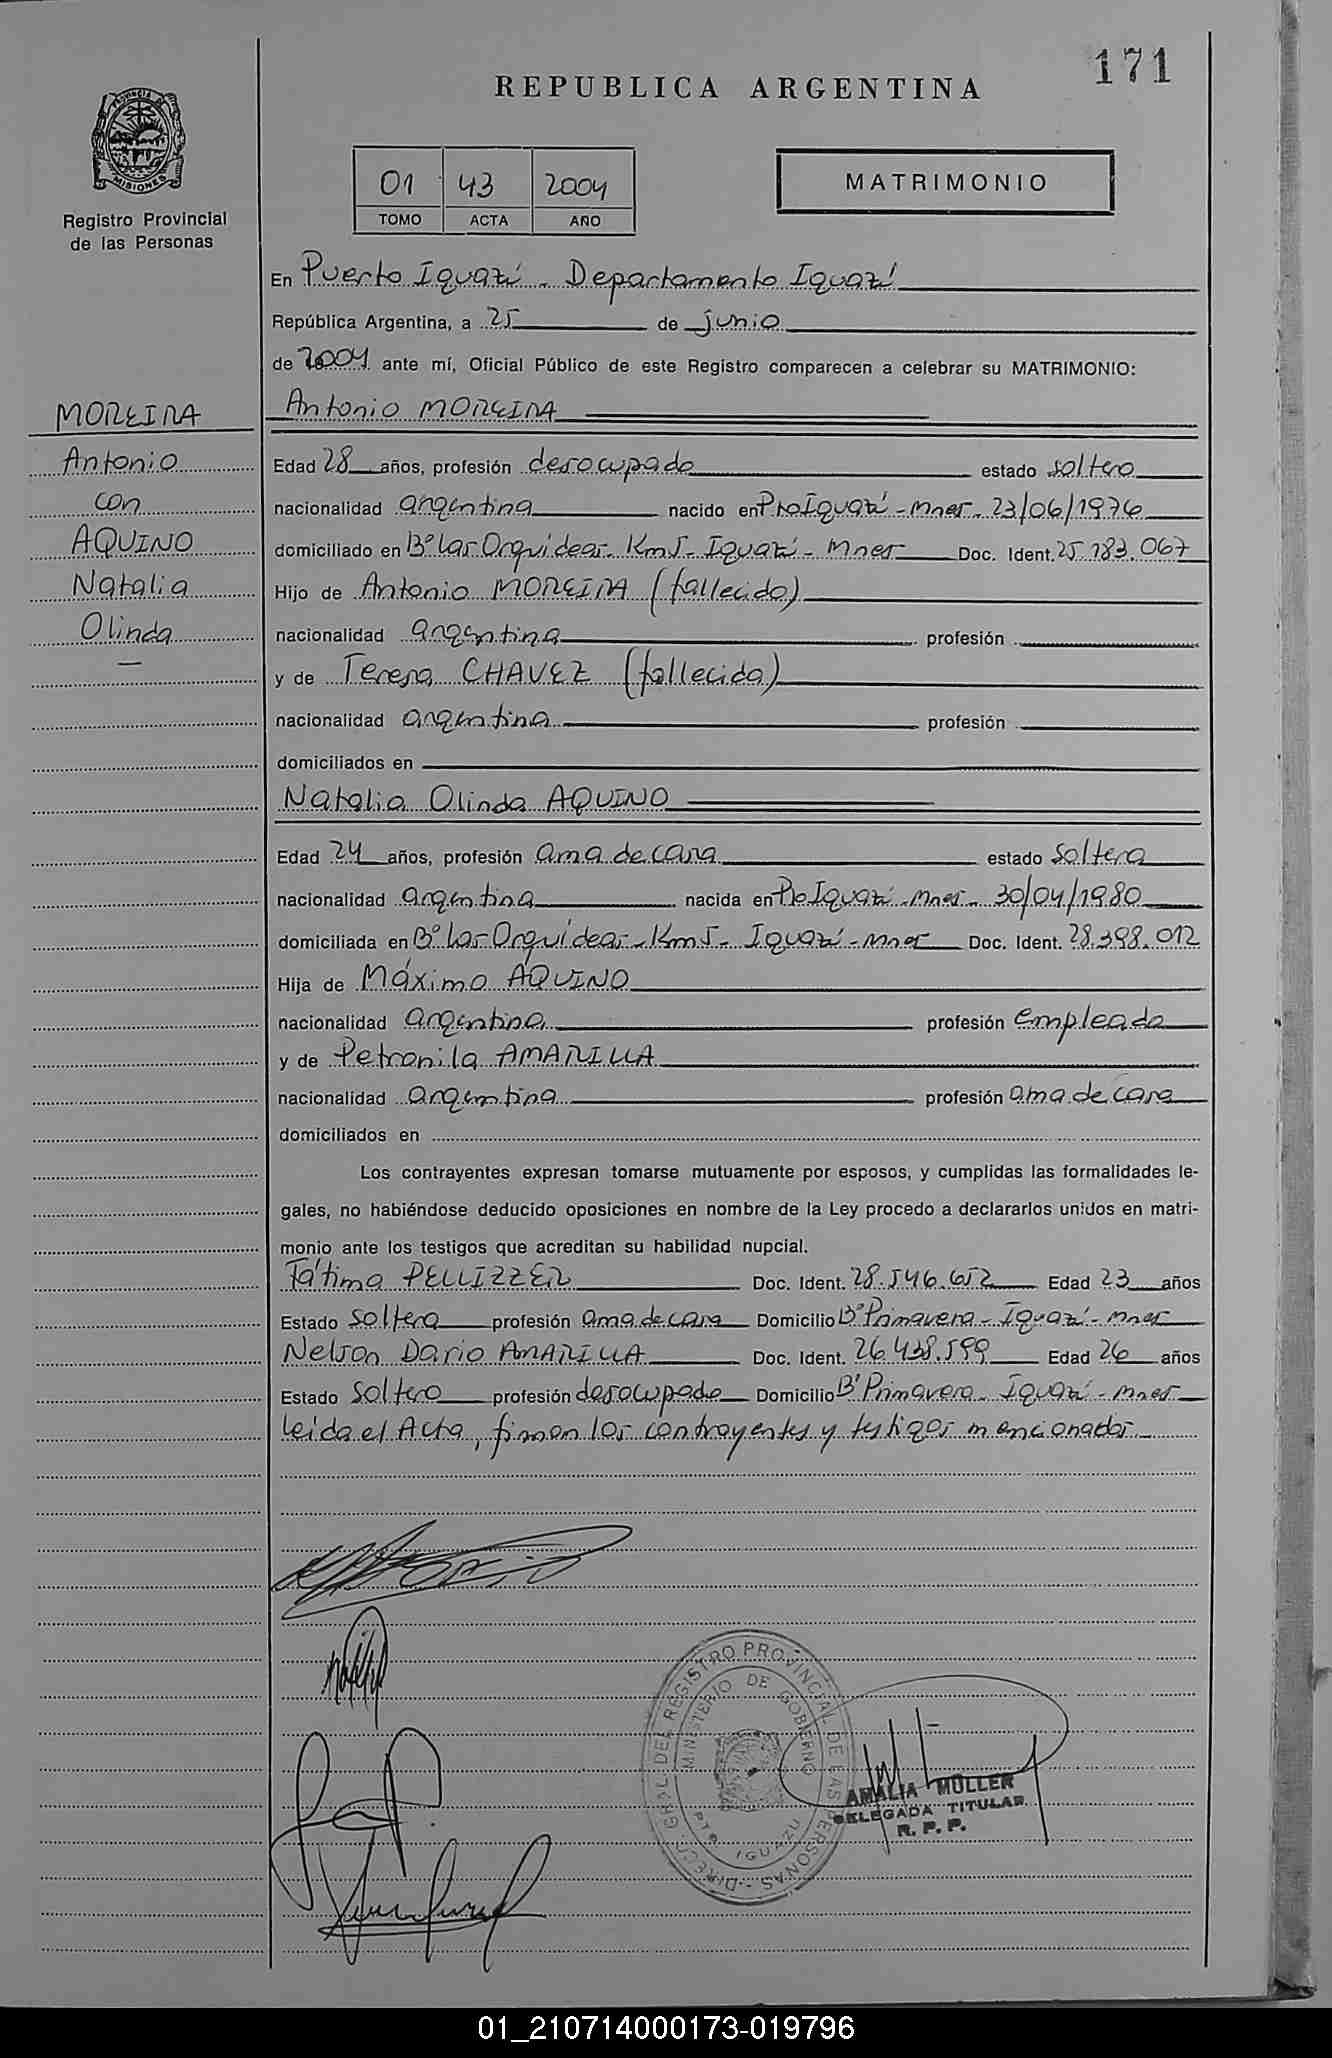 171
REPUBLICA ARGENTINA
PROVINCIA DE MISIONES
Registro Provincial
de las Personas
01 43 2004
TOMO ACTA AÑO
MATRIMONIO
En Puerto Iguazú - Departamento Iguazú
República Argentina, a 25 de junio
de 2004 ante mí, Oficial Público de este Registro comparecen a celebrar su MATRIMONIO:
MOREIRA
Antonio
con
AQUINO
Natalia
Olinda
Antonio MOREIRA
Edad 28 años, profesión desocupado estado soltero
nacionalidad argentina nacido en Pto Iguazú - Mnes - 23/06/1976
domiciliado en B° Las Orquideas - Km 5 - Iguazú - Mnes Doc. Ident. 25.183.067
Hijo de Antonio MOREIRA (fallecido)
nacionalidad argentina profesión
y de Teresa CHAVEZ (fallecida)
nacionalidad argentina profesión
domiciliados en
Natalia Olinda AQUINO
Edad 24 años, profesión ama de casa estado soltera
nacionalidad argentina nacida en Pto Iguazú - Mnes - 30/04/1980
domiciliada en B° Las Orquídeas - Km 5 - Iguazú - Mnes Doc. Ident. 28.398.012
Hija de Máximo AQUINO
nacionalidad argentina profesión empleado
y de Petronila AMARILLA
nacionalidad argentina profesión ama de casa
domiciliados en
Los contrayentes expresan tomarse mutuamente por esposos, y cumplidas las formalidades le-
gales, no habiéndose deducido oposiciones en nombre de la Ley procedo a declararlos unidos en matri-
monio ante los testigos que acreditan su habilidad nupcial.
Fátima PELLIZZER Doc. Ident. 28.546.652 Edad 23 años
Estado soltera profesión ama de casa Domicilio B° Primavera - Iguazú - Mnes
Nelson Dario AMARILLA Doc. Ident. 26.438.599 Edad 26 años
Estado soltero profesión desocupado Domicilio B° Primavera - Iguazú - Mnes
Leida el Acta, firman los contrayentes y testigos mencionados.
DIRECC. GRAL. DEL REGISTRO PROVINCIAL DE LAS PERSONAS
MINISTERIO DE GOBIERNO
PTO IGUAZU
AMALIA MULLER
DELEGADA TITULAR
R. P. P.
01_210714000173-019796